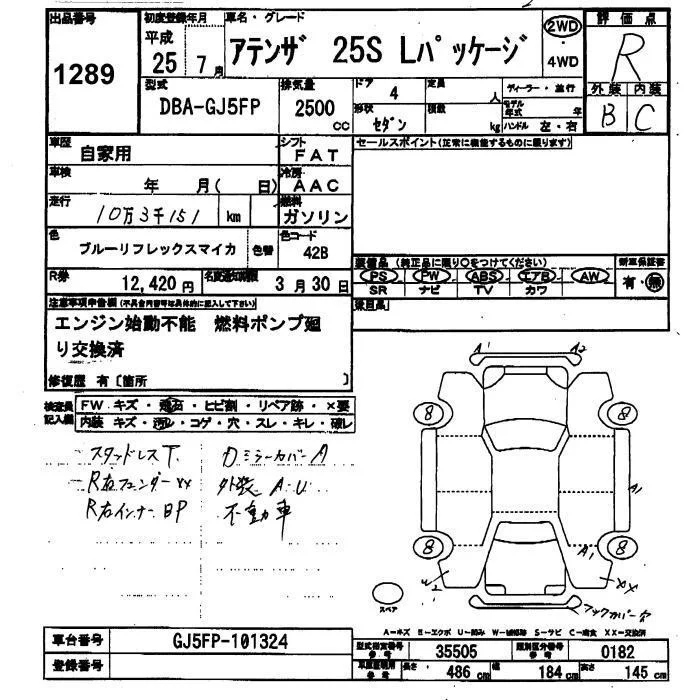 出品番号 初度登録年月 車名・グレード 評価点
1289 平成 25年 7月 アテンザ 25S Lパッケージ 2WD・4WD R
型式 排気量 ドア 4 定員 人 ディーラー・並行 外装 内装
DBA-GJ5FP 2500 cc 形状 セダン 積載 kg モデル年式 年 ハンドル 左・右 B C
車歴 自家用 シフト FAT セールスポイント(正常に機能するものに限ります)
車検 年 月( 日) 冷房 AAC
走行 10万3千151 km 燃料 ガソリン
色 ブルーリフレックスマイカ 色替 色コード 42B 装備品 (純正品に限り○をつけてください) 新車保証書
PS PW ABS エアB AW 有・無
R券 12,420円 名変通知期限 3月30日 SR ナビ TV カワ
注意事項申告欄 (不具合内容等は具体的に記入して下さい)
エンジン始動不能 燃料ポンプ廻
り交換済
修復歴 有〔箇所 〕
検査員記入欄 FW キズ・飛石・ヒビ割・リペア跡・×要
内装 キズ・汚れ・コゲ・穴・スレ・キレ・破レ
スタッドレス下 Dミラーカバー A
R右フェンダー xx 外装 A・U
R右インナー BP 不動車
A1 A2
8 8
A1
8 8
A1
xx
スペア
バックカバー
A=キズ E=エクボ U=凹み W=補修跡 S=サビ C=腐食 XX=交換済
車台番号 GJ5FP-101324 型式指定番号 参考 35505 類別区分番号 参考 0182
登録番号 参考 長さ 486 cm 幅 184 cm 高さ 145 cm